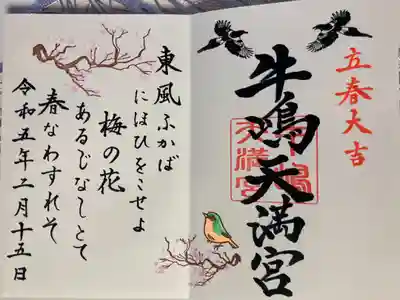 立春大吉
牛嶋天満宮
牛嶋天満宮
東風ふかば
にほひをこせよ
梅の花
あるじなしとて
春なわすれそ
令和五年二月十五日